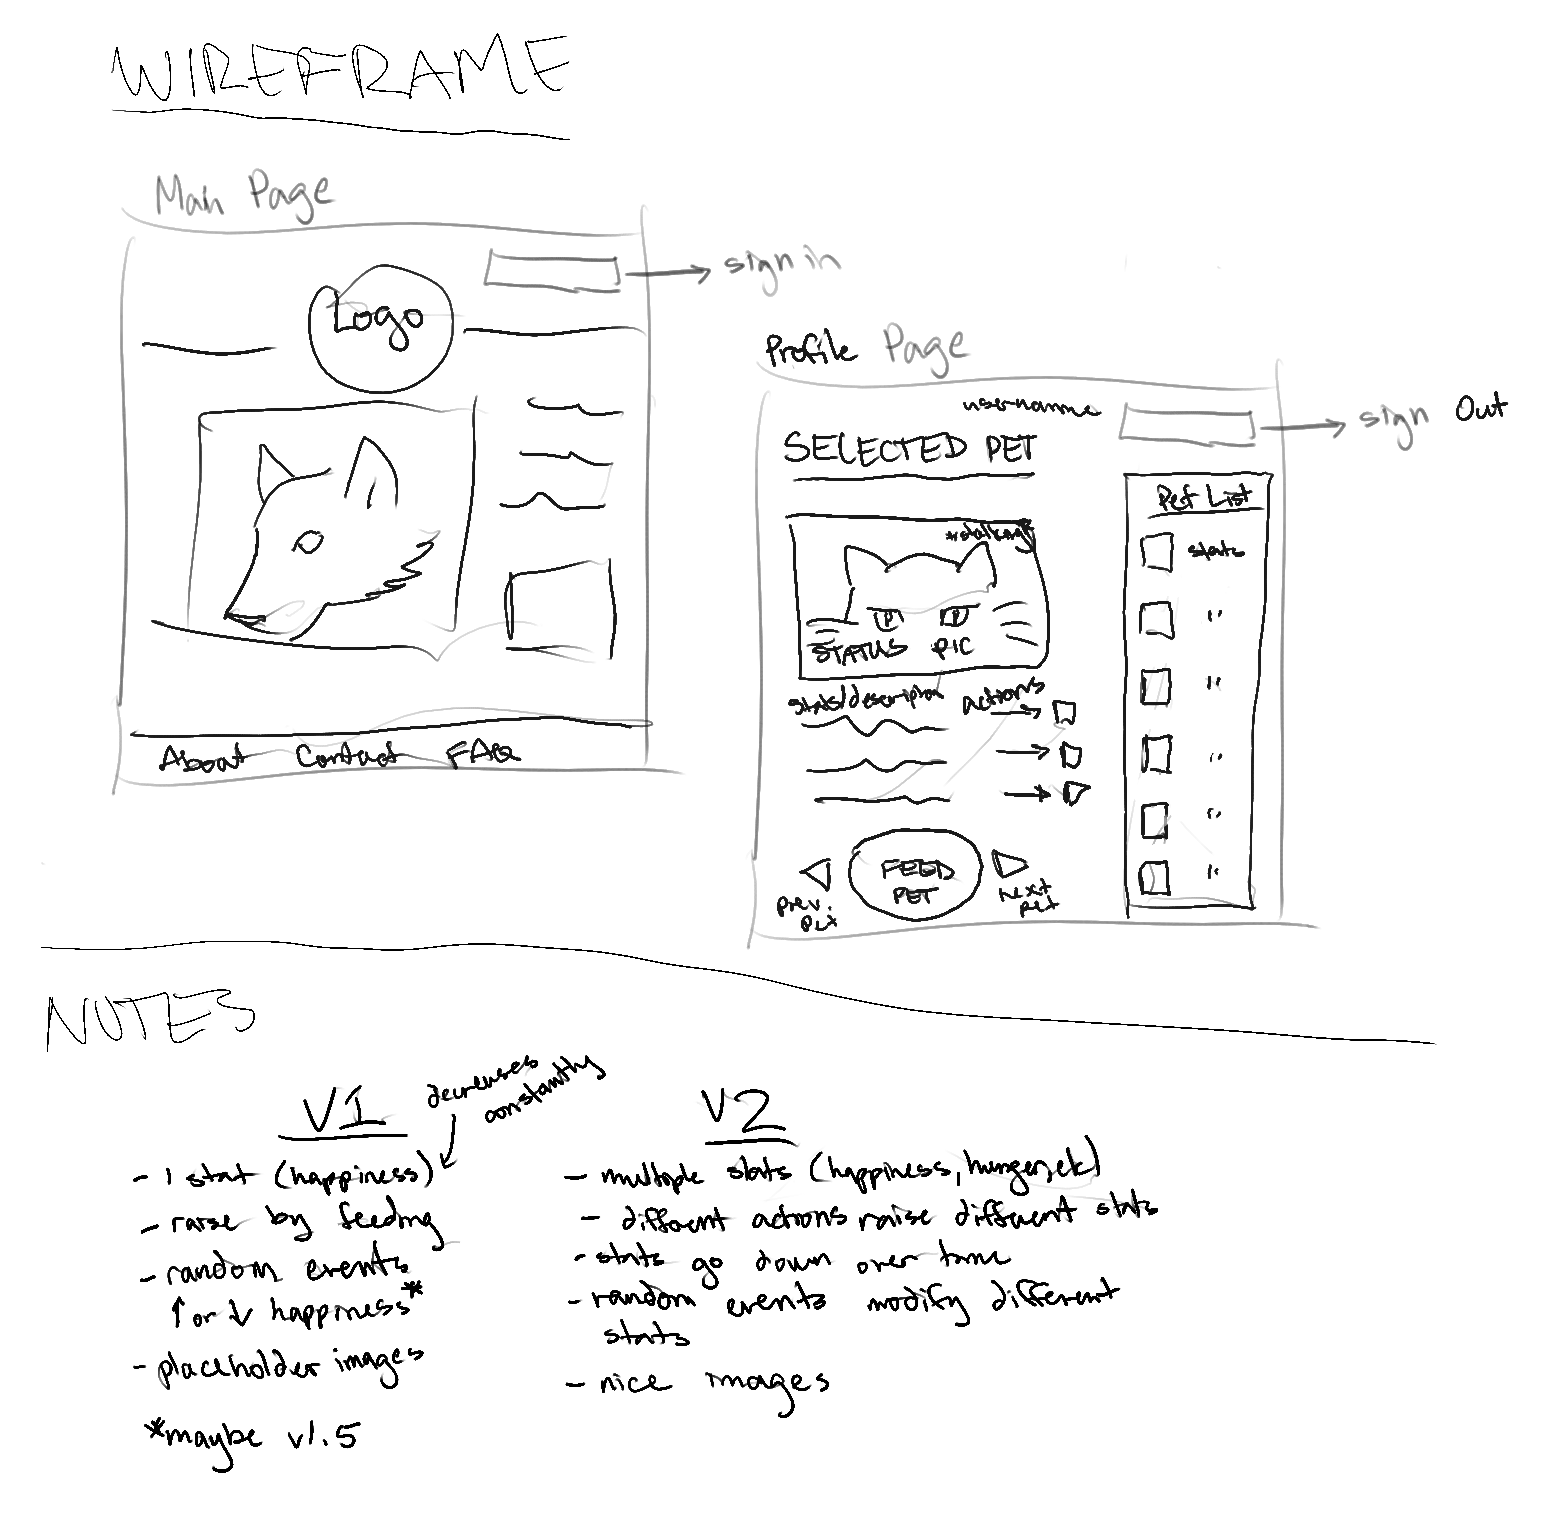 WIREFRAME
Main Page
sign in
Logo
About Contact FAQ
Profile Page
username
sign Out
SELECTED PET
Pet List
*stalking*
stats
"
"
"
"
"
STATUS PIC
stats/description actions
FEED
PET
prev.
pet
next
pet
NOTES
V1
decreases
constantly
- 1 stat (happiness)
- raise by feeding
- random events
↑ or ↓ happiness*
- placeholder images
*maybe v1.5
V2
- multiple stats (happiness, hunger, etc)
- different actions raise different stats
- stats go down over time
- random events modify different
stats
- nice images